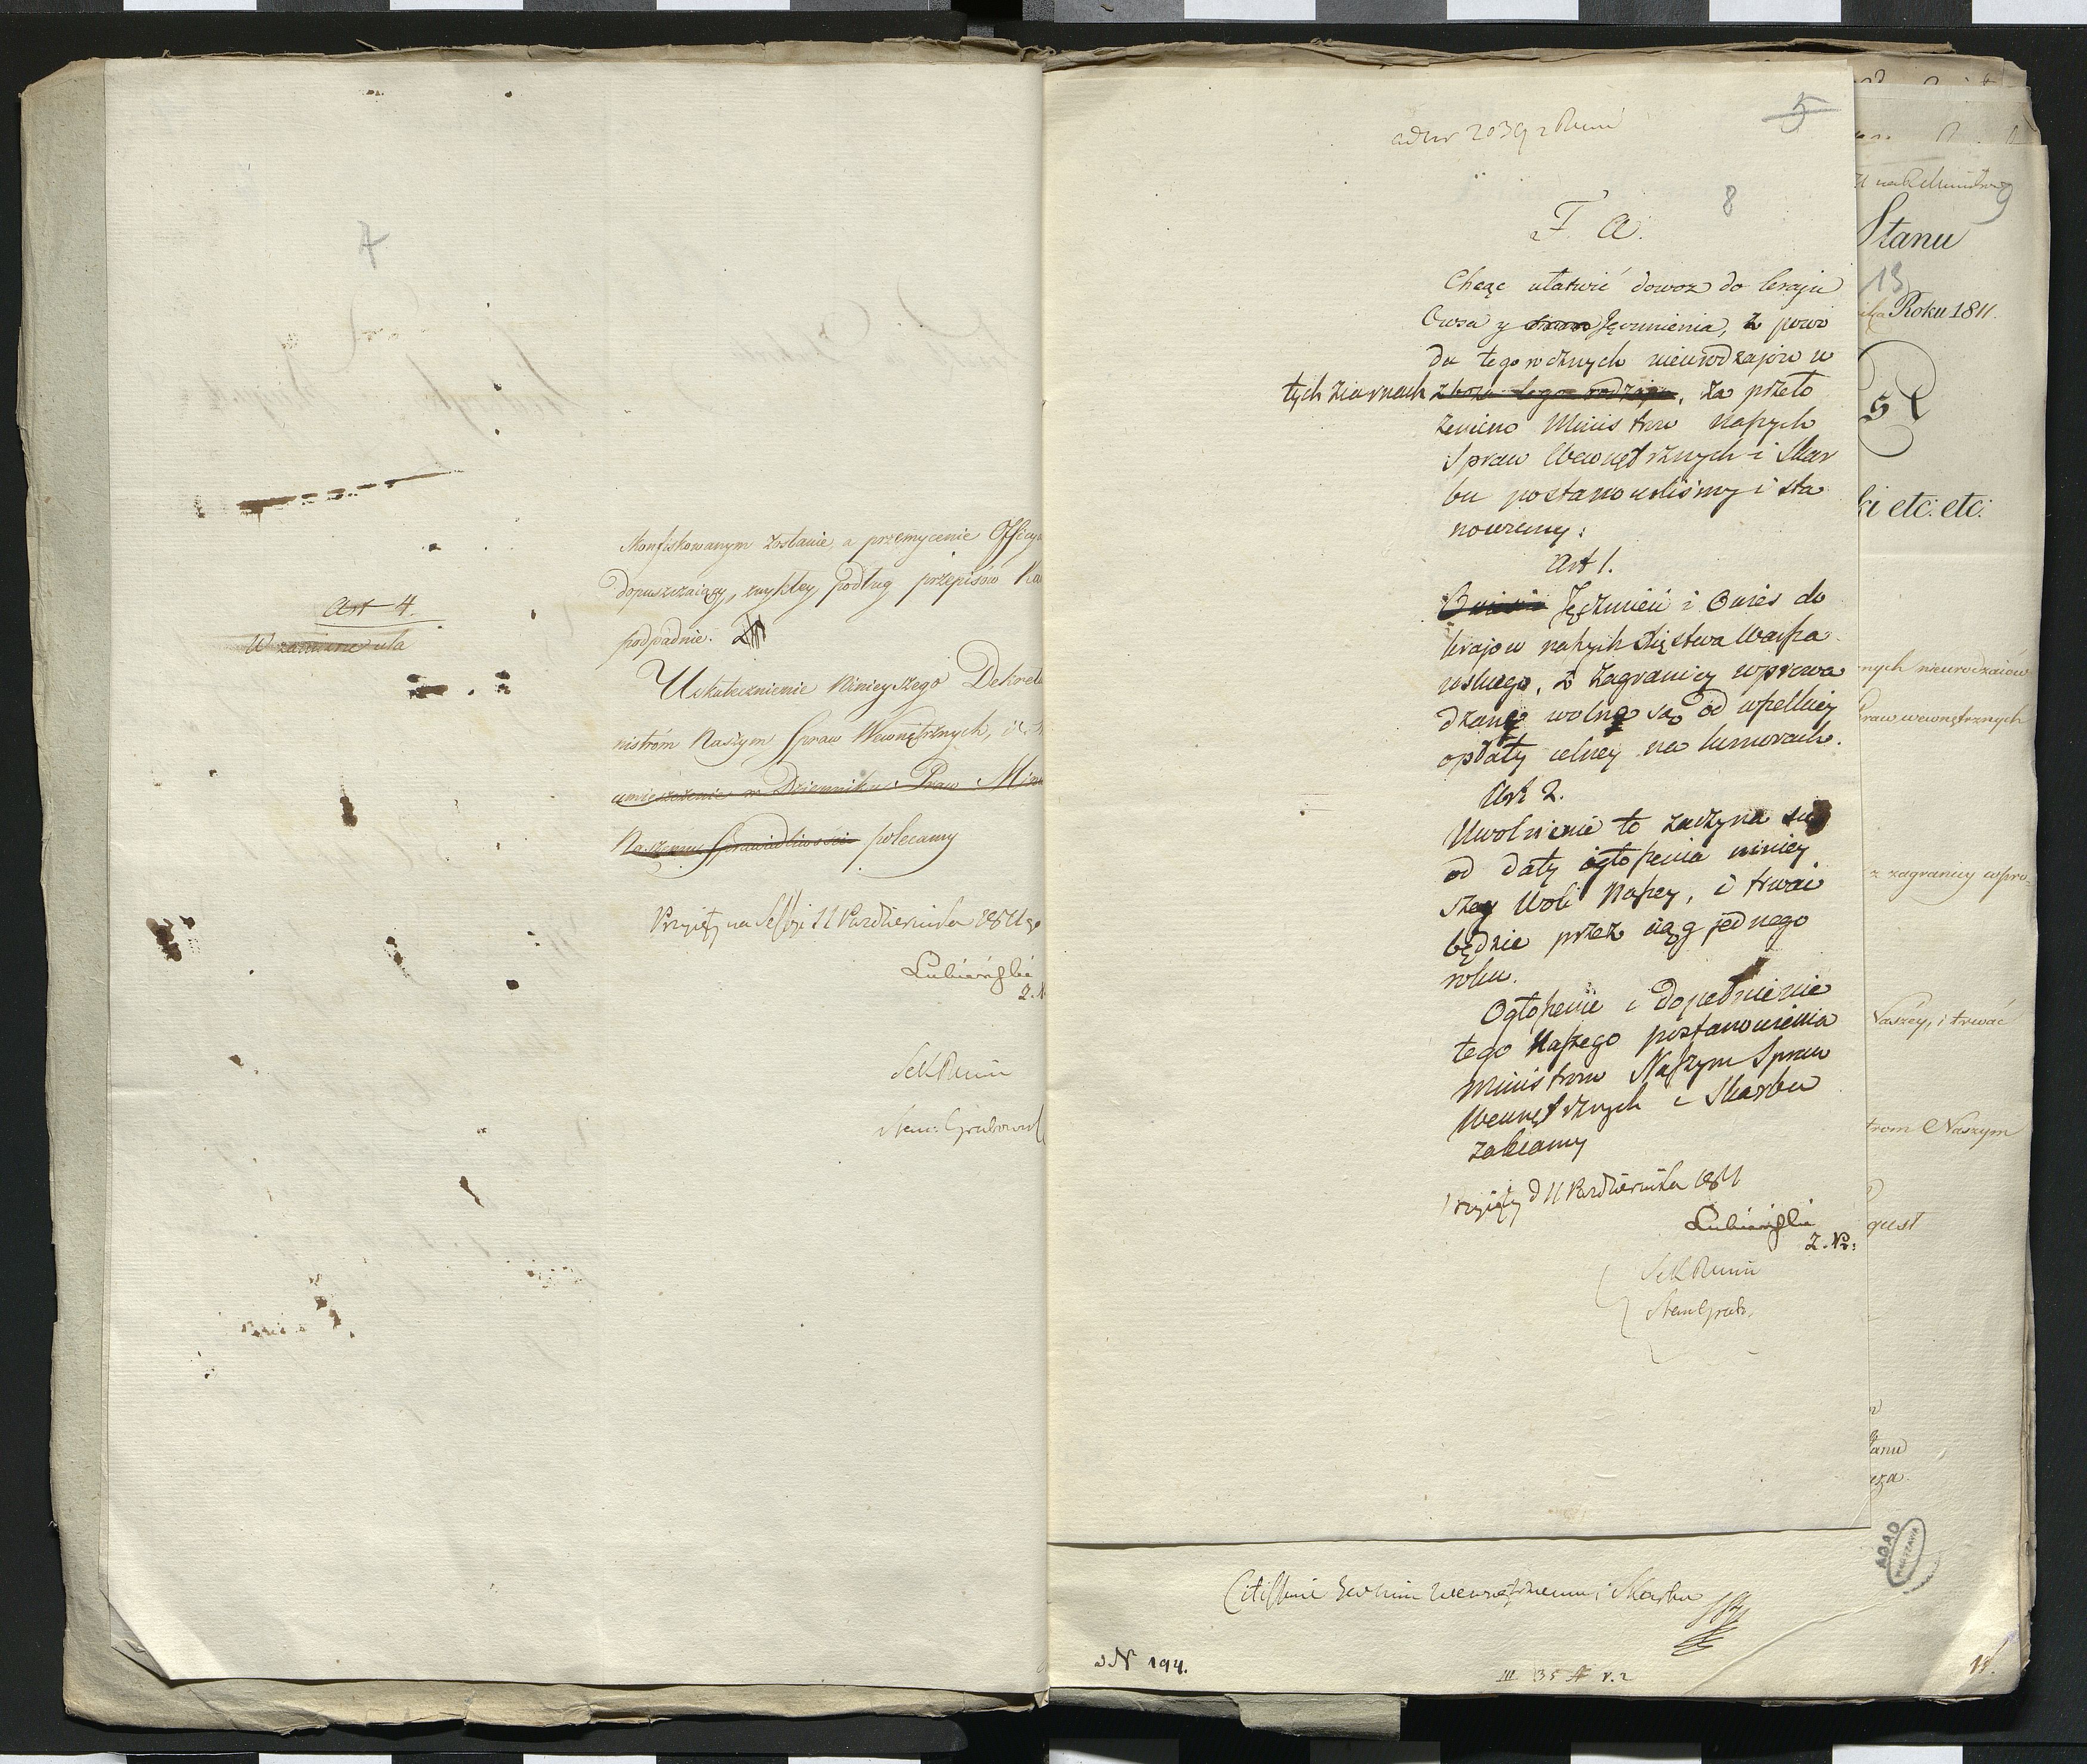 4
Art 4.
W zamiarze ula
Konfiskowanym zostanie, a przemycenie Officya
dopuszczaiący, zwykłey podług przepisów Ka
podpadnie.
Uskutecznienie Ninieyszego Dekretu
nistróm Naszym Spraw Wewnętrznych, i
umieszczenie w Dzienniku Praw Mini
Naszemu Sprawiedliwości polecamy
Przyięty na Sessyi 11 Października 1811 go
Łubieński
Sek
Stan: Grabowsk
ad Nr 2039
5
8
F. A.
Chcąc ułatwić dowoz do kraju
Owsa y Jęczmienia, z powo
du tegorocznych nieurodzajów w
tych ziarnach zboża tego rodzaju, za przeło
żeniem Ministrów Naszych
Spraw Wewnętrznych i Skar
bu postanowiliśmy i sta
nowiemy:
Art 1.
Jęczmień i Owies do
krajow naszych Xięstwa Warsza
wskiego, z zagranicy wprowa
dzane wolne są od wszelkiey
opłaty celney na komorach.
Art 2.
Uwolnienie to zaczyna się
od daty ogłoszenia niniey
szey Woli Naszey, i trwać
będzie przez ciąg jednego
roku.
Ogłoszenie i dopełnienie
tego Naszego postanowienia
Ministrom Naszym Spraw
Wewnętrznych i Skarbu
zalecamy
Przyięty d 11 Października 1811
Łubieński
Z. Pr:
Sek
Stan Grab.
9
Stanu
13
Roku 1811.
ki etc: etc:
nych nieurodzaiów
Spraw wewnętrznych
z zagranicy wpro=
Naszéy, i trwać
trom Naszym
gust
Stanu
eza.
AGAD
WARSZAWA
Citissime Wewnętrznemu i Skarbu
N 194.
III 35 r. 2